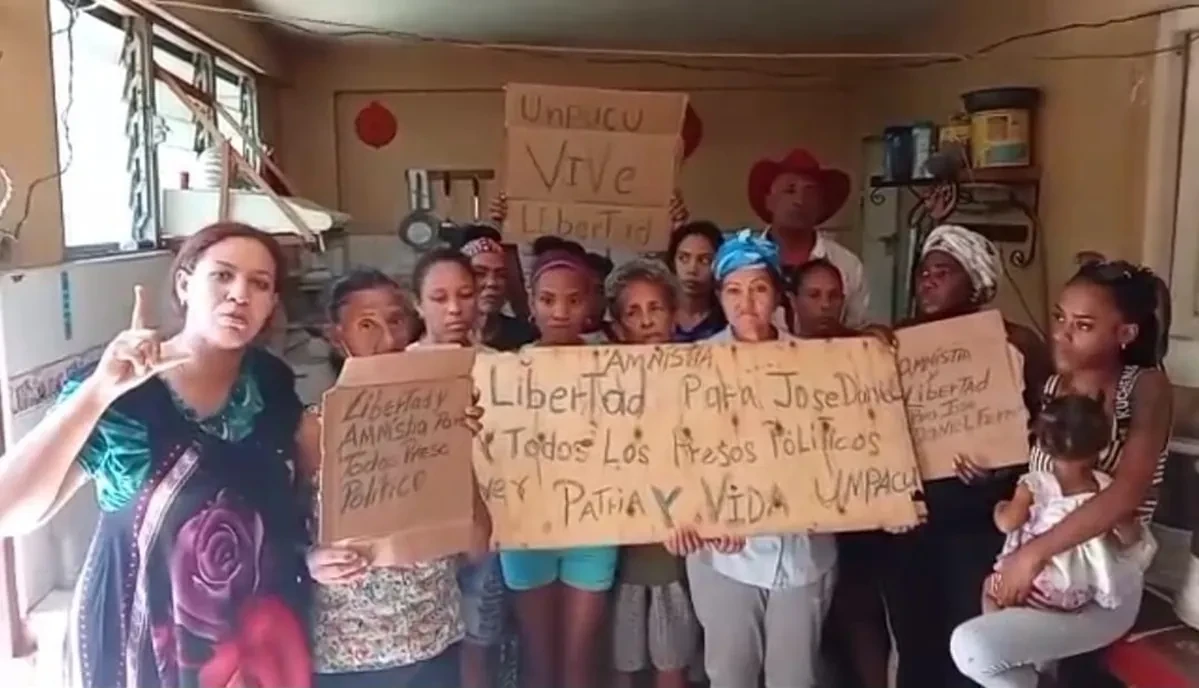 UnPUCU
VIVe
LIBertad
Libertad y
AMNistia Para
Todos Preso
Politico
AMNISTIA
LIBerTad Para Jose Daniel
Y Todos Los Presos Políticos
PATriA Y VIDA UNPACU
AMNISTIA
LIBertad
Para Jose
DANIEL
KUCHEN